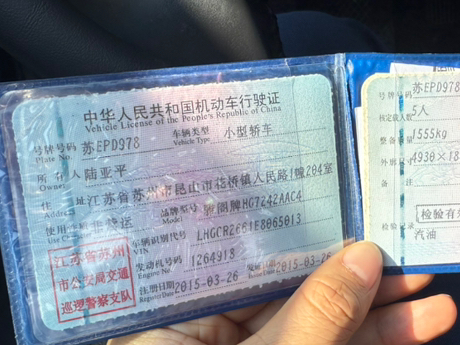 中华人民共和国机动车行驶证
Vehicle License of the People's Republic of China
号牌号码 苏EPD978 车辆类型 小型轿车
Plate No. Vehicle Type
所有人 陆亚平
Owner
住址 江苏省苏州市昆山市花桥镇人民路1幢204室
Address
使用 品牌型号 牌HG7242AAC4
Use C Model
车辆识别代号 LHGCR2661E8065013
VIN
发动机号码 1264918
Engine No.
注册日期 2015-03-26 发证日期 2015-03-26
Register Date Issue Date
江苏省苏州
市公安局交通
巡逻警察支队
号牌号码 苏EPD978
核定载人数 5人
整备质量 1555kg
外廓 4930×18
检验记录 [检验有
汽油